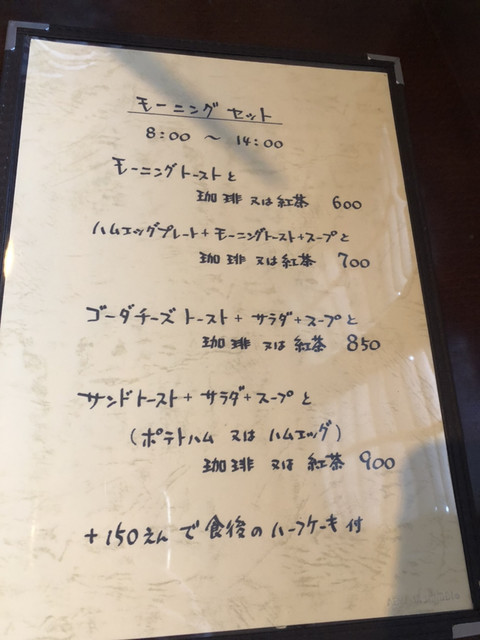 モーニングセット
8:00 ～ 14:00
モーニングトーストと
珈琲 又は 紅茶 600
ハムエッグプレート+モーニングトースト+スープと
珈琲 又は 紅茶 700
ゴーダチーズトースト+サラダ+スープと
珈琲 又は 紅茶 850
サンドトースト+サラダ+スープと
(ポテトハム 又は ハムエッグ)
珈琲 又は 紅茶 900
+150えんで食後のハーフケーキ付